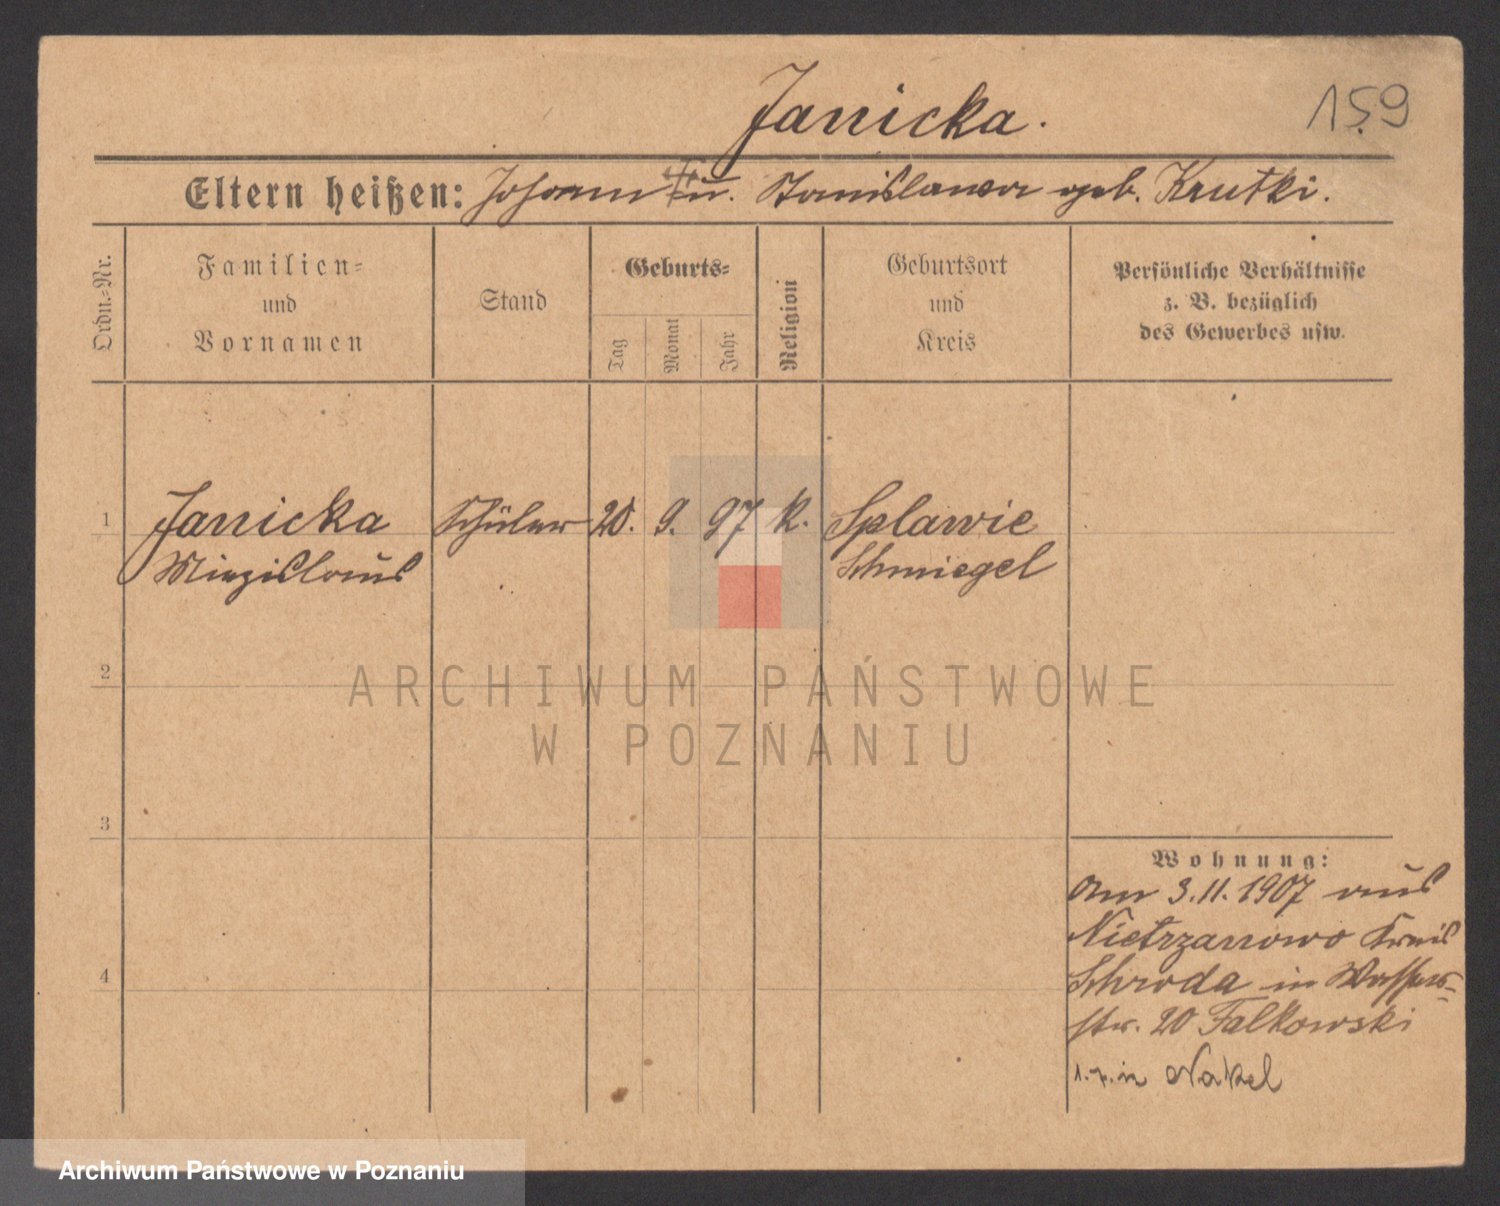 Janicka.
159
Eltern heißen: Johann u. Stanislawa geb. Krutki.
Ordn.-Nr.
Familien-
und
Vornamen
Stand
Geburts-
Tag
Monat
Jahr
Religion
Geburtsort
und
Kreis
Persönliche Verhältnisse
z. B. bezüglich
des Gewerbes usw.
1 Janicka Schüler 20. 9. 97 k. Splawie
Miezislaus Schmiegel
2
3
4
Wohnung:
Am 3.11.1907 aus
Nietrzanowo Kreis
Schroda in Wasser-
str. 20 Falkowski
in Nakel
ARCHIWUM PAŃSTWOWE
W POZNANIU
Archiwum Państwowe w Poznaniu